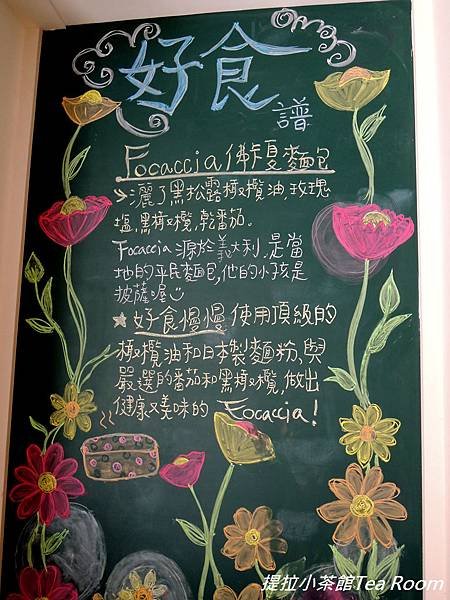 好食
譜
Focaccia佛卡夏麵包
灑了黑松露橄欖油,玫瑰
塩,黑橄欖,乾番茄。
Focaccia源於義大利,是當
地的平民麵包,他的小孩是
披薩喔
★好食慢慢使用頂級的
橄欖油和日本製麵粉,與
嚴選的番茄和黑橄欖,做出
健康又美味的Focaccia!
提拉小茶館Tea Room